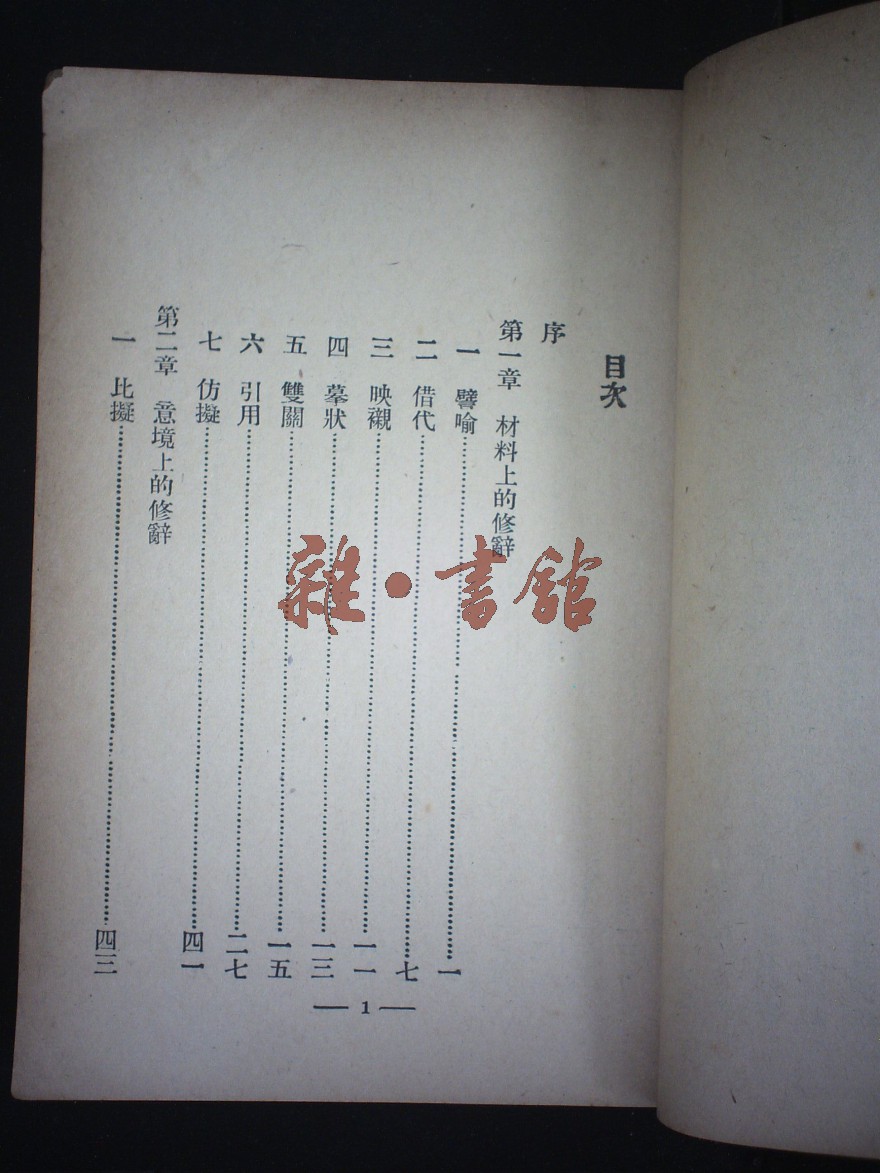 目次
序
第一章 材料上的修辭
一 譬喻……一
二 借代……七
三 映襯……一一
四 摹狀……一三
五 雙關……一五
六 引用……二七
七 仿擬……四一
第二章 意境上的修辭
一 比擬……四三
— 1 —
雜·書館